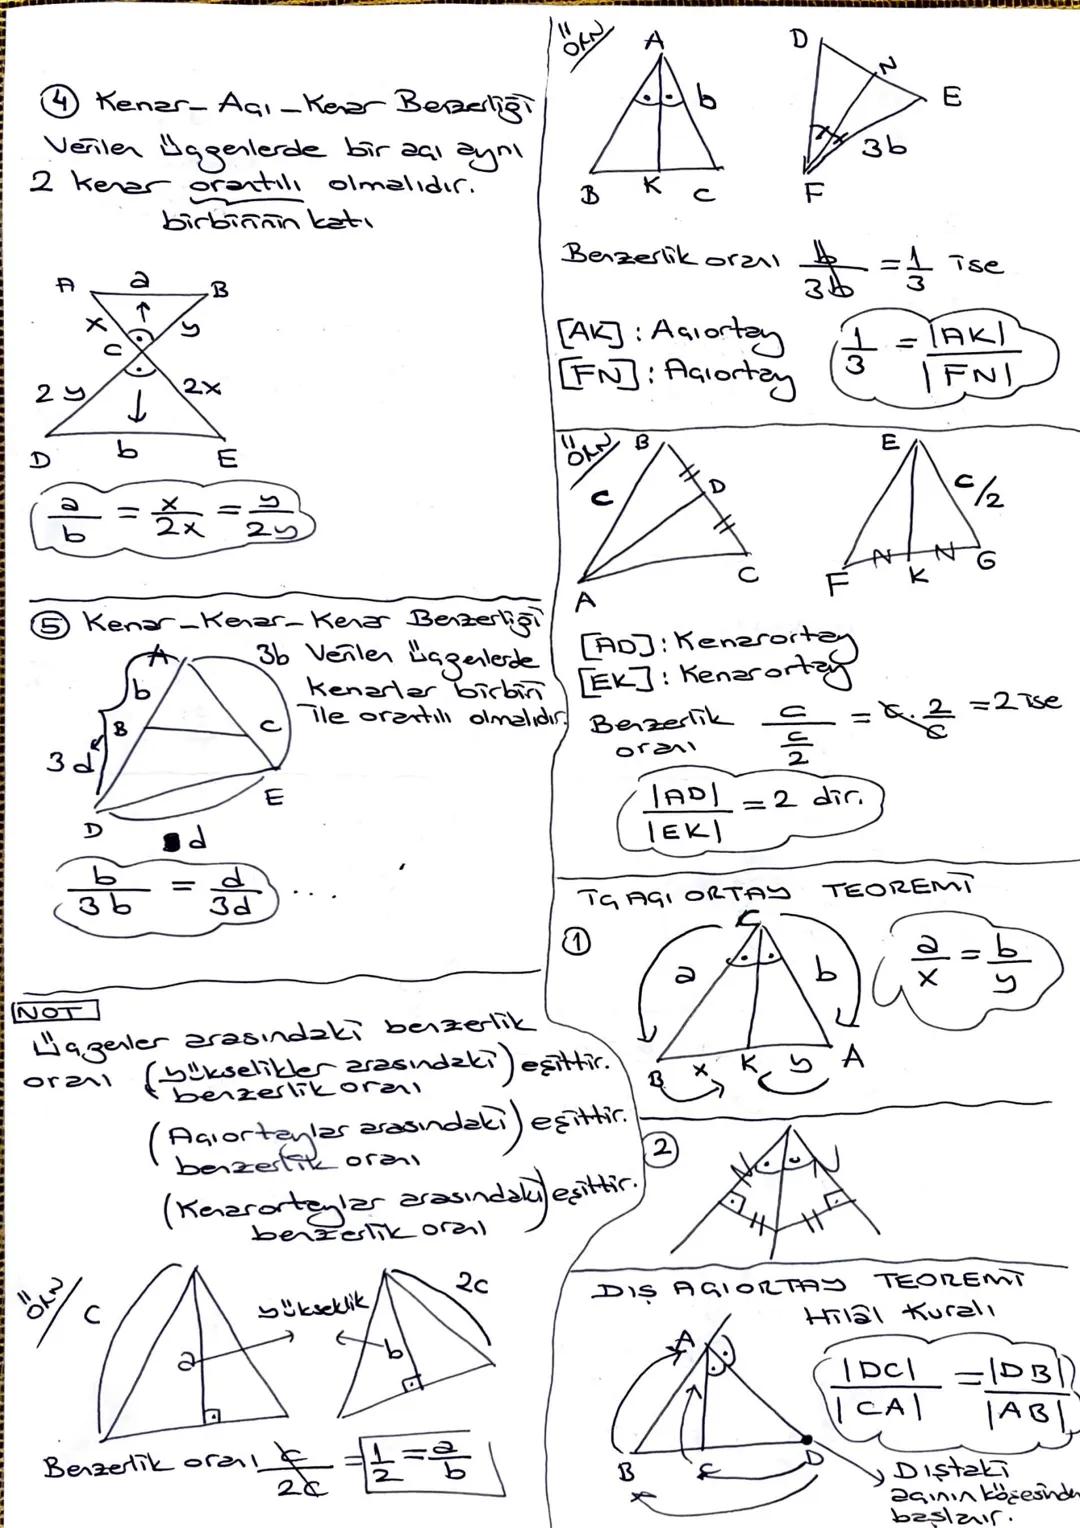 ④ Kenar - Açı - Kenar Benzerliği
Verilen üçgenlerde bir açı aynı
2 kenar orantılı olmalıdır.
birbirinin katı
A a B
x y
C
2y 2x
D b E
a/b = x/2x = y/2y
⑤ Kenar - Kenar - Kenar Benzerliği
A 3b Verilen üçgenlerde
b kenarlar birbiri
B C ile orantılı olmalıdır.
3d
E
D
d
b/3b = d/3d ...
NOT
Üçgenler arasındaki benzerlik
oranı (yükseklikler arasındaki) eşittir.
benzerlik oranı
(Açıortaylar arasındaki) eşittir.
benzerlik oranı
(Kenarortaylar arasındaki) eşittir.
benzerlik oranı
ÖRN/ C yükseklik 2c
a b
Benzerlik oranı c/2c = 1/2 = a/b
ÖRN/ A D N
b E
3b
B K C F
Benzerlik oranı b/3b = 1/3 ise
[AK] : Açıortay 1/3 = |AK|/|FN|
[FN] : Açıortay
ÖRN/ B E
c D c/2
C F K G
A
[AD] : Kenarortay
[EK] : Kenarortay
Benzerlik c/(c/2) = c . 2/c = 2 ise
oranı
|AD|/|EK| = 2 dir.
İÇ AÇI ORTAY TEOREMİ
① C
a b a/x = b/y
B x K y A
②
DIŞ AÇIORTAY TEOREMİ
Hilâl Kuralı
A
|DC|/|CA| = |DB|/|AB|
B C D
Dıştaki
açının köşesinden
başlanır.